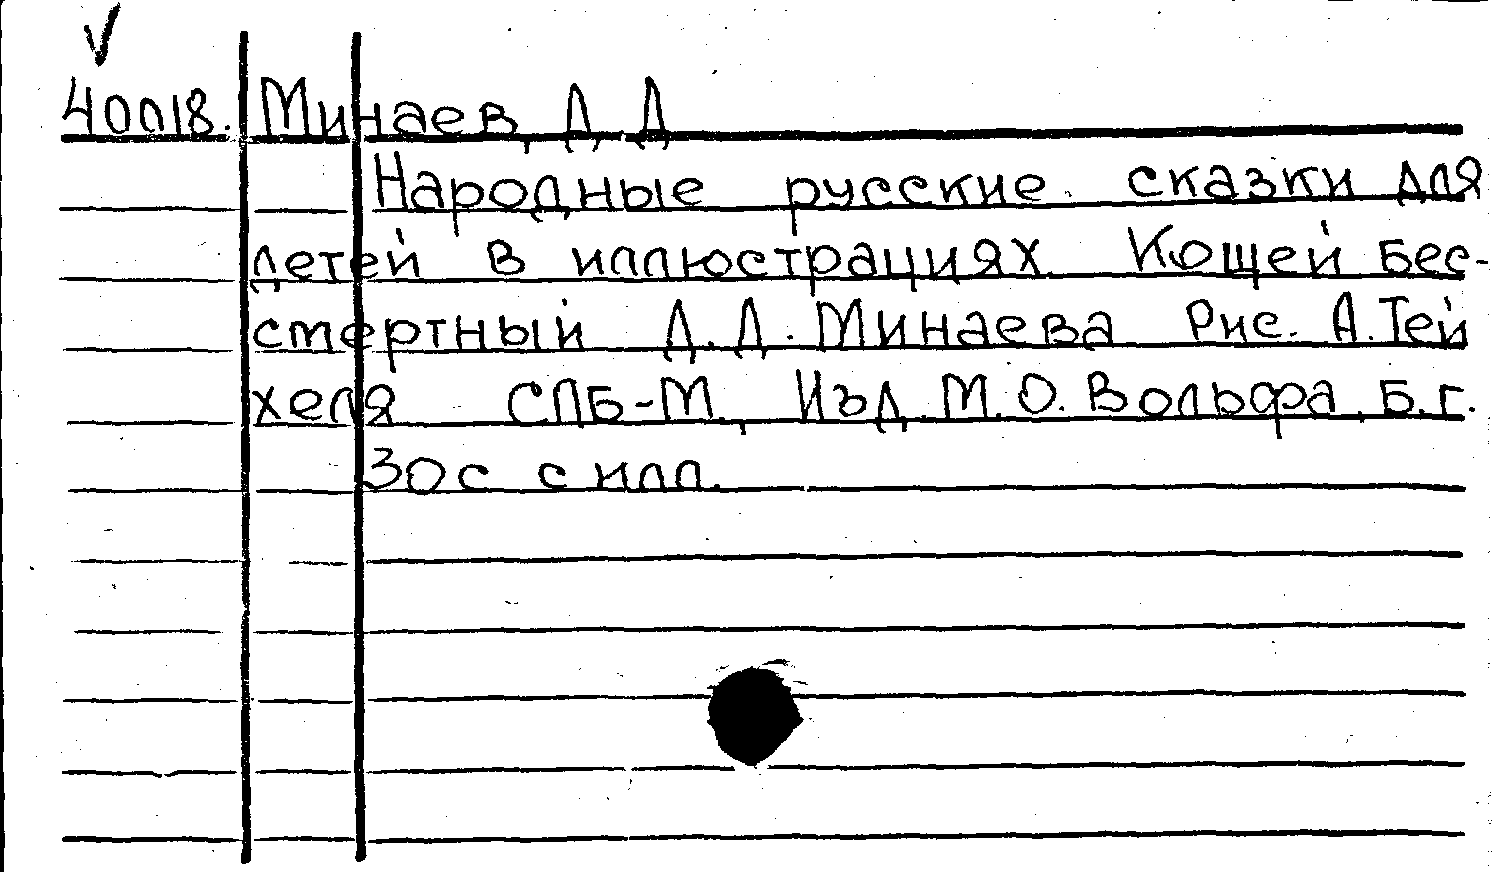 40018. Минаев, Д. Д.
Народные русские сказки для
детей в иллюстрациях. Кощей Бес-
смертный Д. Д. Минаева Рис. А. Тей
хеля СПБ-М., Изд. М. О. Вольфа, Б. г.
30 с с илл.